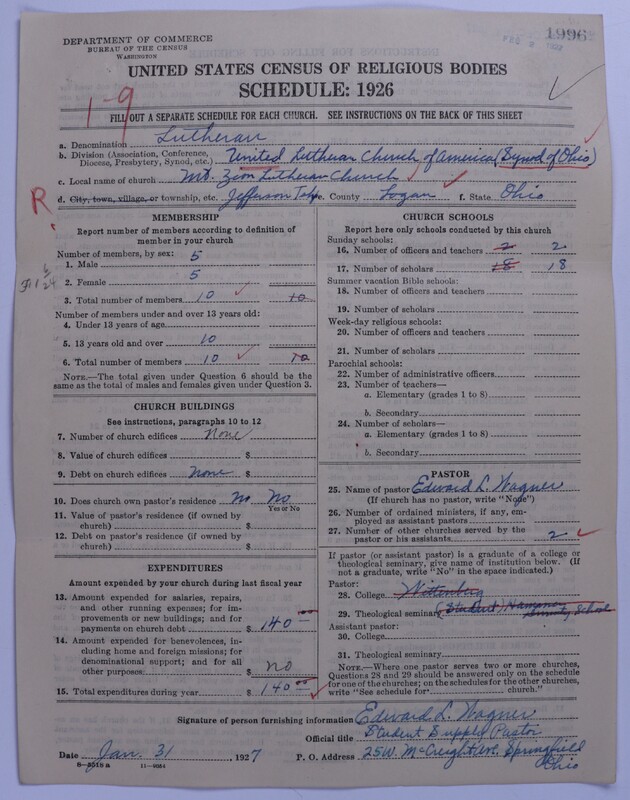 DEPARTMENT OF COMMERCE
BUREAU OF THE CENSUS
WASHINGTON
1996
UNITED STATES CENSUS OF RELIGIOUS BODIES
SCHEDULE: 1926
1-9
FILL OUT A SEPARATE SCHEDULE FOR EACH CHURCH. SEE INSTRUCTIONS ON THE BACK OF THIS SHEET
a. Denomination Lutheran
b. Division (Association, Conference, Diocese, Presbytery, Synod, etc.) United Lutheran Church of America (Synod of Ohio)
c. Local name of church Mt. Zion Lutheran Church
R
d. City, town, village, or township, etc. Jefferson Twp. County Logan f. State Ohio
MEMBERSHIP
Report number of members according to definition of
member in your church
Number of members, by sex:
1. Male 5
2. Female 5
3. Total number of members 10 10
Number of members under and over 13 years old:
4. Under 13 years of age
5. 13 years old and over 10
6. Total number of members 10 10
NOTE.—The total given under Question 6 should be
same as the total of males and females given under Question 3.
CHURCH BUILDINGS
See instructions, paragraphs 10 to 12
7. Number of church edifices None
8. Value of church edifices $
9. Debt on church edifices None $
10. Does church own pastor's residence No No
Yes or No
11. Value of pastor's residence (if owned by
church) $
12. Debt on pastor's residence (if owned by
church) $
EXPENDITURES
Amount expended by your church during last fiscal year
13. Amount expended for salaries, repairs,
and other running expenses; for im-
provements or new buildings; and for
payments on church debt $ 140 00
14. Amount expended for benevolences, in-
cluding home and foreign missions; for
denominational support; and for all
other purposes $ no
15. Total expenditures during year $ 140 00
CHURCH SCHOOLS
Report here only schools conducted by this church
Sunday schools:
16. Number of officers and teachers 2 2
17. Number of scholars 18 18
Summer vacation Bible schools:
18. Number of officers and teachers
19. Number of scholars
Week-day religious schools:
20. Number of officers and teachers
21. Number of scholars
Parochial schools:
22. Number of administrative officers
23. Number of teachers—
a. Elementary (grades 1 to 8)
b. Secondary
24. Number of scholars—
a. Elementary (grades 1 to 8)
b. Secondary
PASTOR
25. Name of pastor Edward L. Wagner
(If church has no pastor, write "None")
26. Number of ordained ministers, if any, em-
ployed as assistant pastors
27. Number of other churches served by the
pastor or his assistants 2
If pastor (or assistant pastor) is a graduate of a college or
theological seminary, give name of institution below. (If
not a graduate, write "No" in the space indicated.)
Pastor:
28. College Wittenberg
29. Theological seminary (Student) Hamma Divinity School
Assistant pastor:
30. College
31. Theological seminary
NOTE.—Where one pastor serves two or more churches,
Questions 28 and 29 should be answered only on the schedule
for one of the churches; on the schedules for the other churches,
write "See schedule for church."
Signature of person furnishing information Edward L. Wagner
Official title Student Supply Pastor
Date Jan. 31 1927 P. O. Address 25 W. McCreight Ave. Springfield
Ohio
8-5518 a 11-9684